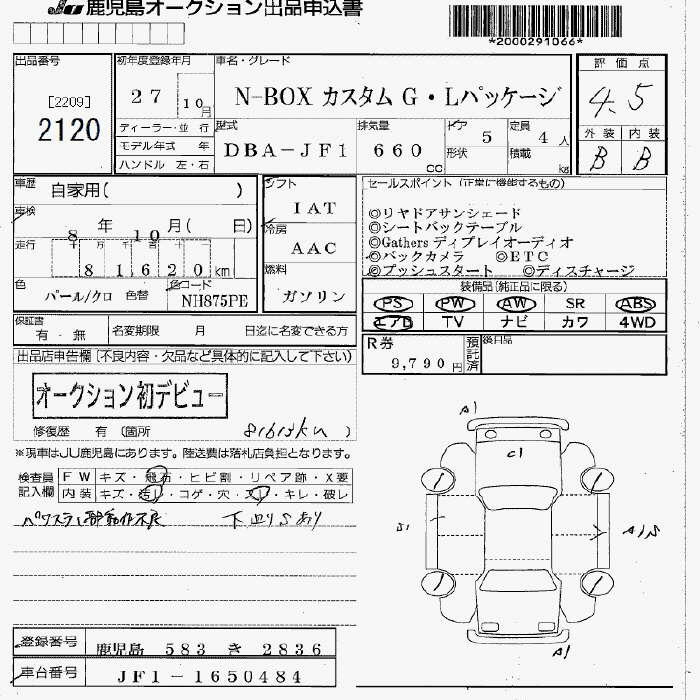 JU 鹿児島オークション出品申込書
*2000291066*
出品番号
[2209]
2120
初年度登録年月
27 10月
ディーラー・並 行
モデル年式 年
ハンドル 左・右
車名・グレード
N-BOX カスタムG・Lパッケージ
型式
DBA-JF1
排気量
660 CC
ドア 5
形状
定員 4 人
積載 kg
評価点
4.5
外装 内装
B B
車歴 自家用( )
車検 8 年 10 月( 日)
走行 十 万 千 百 十
81620 km
色 パール/クロ 色替 色コード NH875PE
シフト
IAT
冷房
AAC
燃料
ガソリン
セールスポイント (正常に機能するもの)
◎リヤドアサンシェード
◎シートバックテーブル
◎Gathers ディプレイオーディオ
◎バックカメラ ◎ETC
◎プッシュスタート ◎ディスチャージ
装備品(純正品に限る)
PS PW AW SR ABS
エアB TV ナビ カワ 4WD
保証書
有・無
名変期限 月 日迄に名変できる方
R券
9,790 円
預託済
後日品
出品店申告欄(不良内容・欠品など具体的に記入して下さい)
オークション初デビュー
修復歴 有 (箇所 )
※現車はJU鹿児島にあります。陸送費は落札店負担となります。
検査員記入欄
FW キズ・飛石・ヒビ割・リペア跡・X要
内装 キズ・汚レ・コゲ・穴・スレ・キレ・破レ
A1
C1
A1
登録番号 鹿児島 583 き 2836
車台番号 JF1-1650484